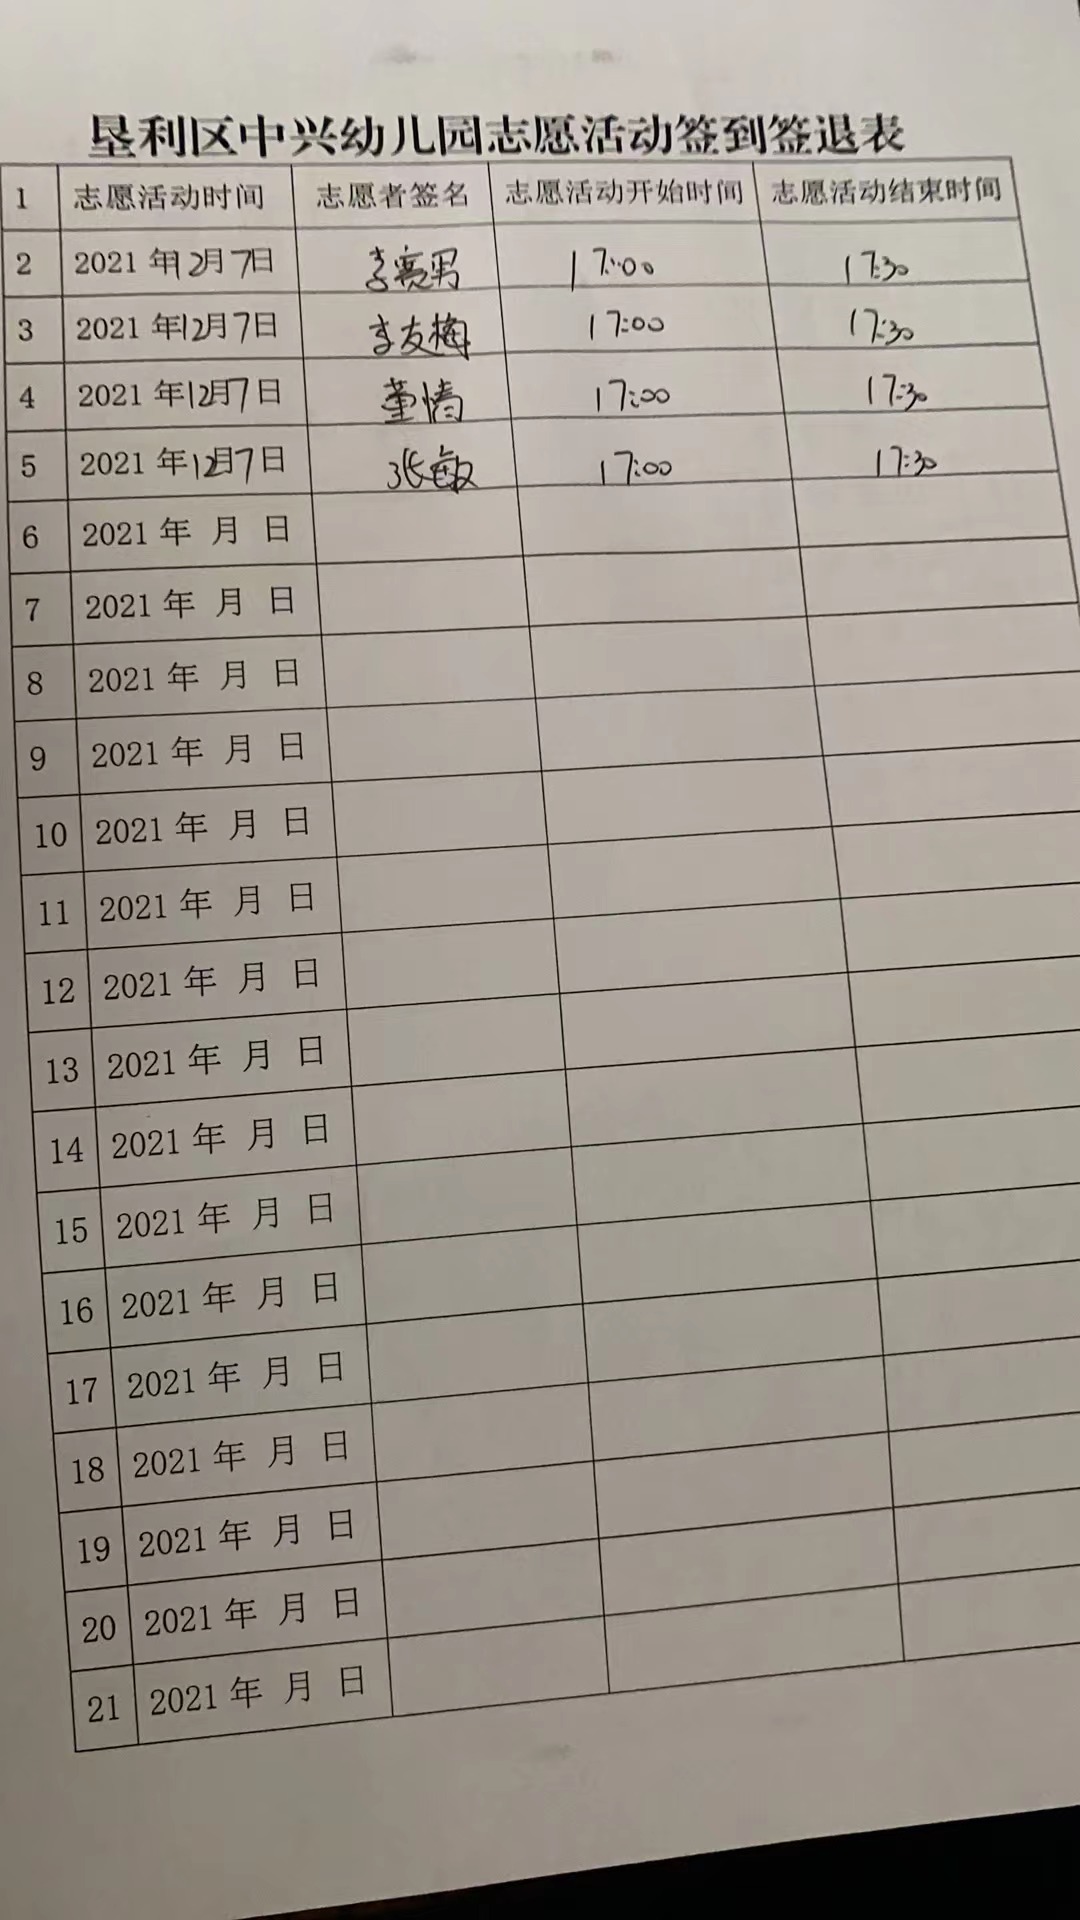 垦利区中兴幼儿园志愿活动签到签退表
1 志愿活动时间 志愿者签名 志愿活动开始时间 志愿活动结束时间
2 2021 年12月7日 李亮男 17:00 17:30
3 2021 年12月7日 李友梅 17:00 17:30
4 2021 年12月7日 董倩 17:00 17:30
5 2021 年12月7日 张敏 17:00 17:30
6 2021 年 月 日
7 2021 年 月 日
8 2021 年 月 日
9 2021 年 月 日
10 2021 年 月 日
11 2021 年 月 日
12 2021 年 月 日
13 2021 年 月 日
14 2021 年 月 日
15 2021 年 月 日
16 2021 年 月 日
17 2021 年 月 日
18 2021 年 月 日
19 2021 年 月 日
20 2021 年 月 日
21 2021 年 月 日